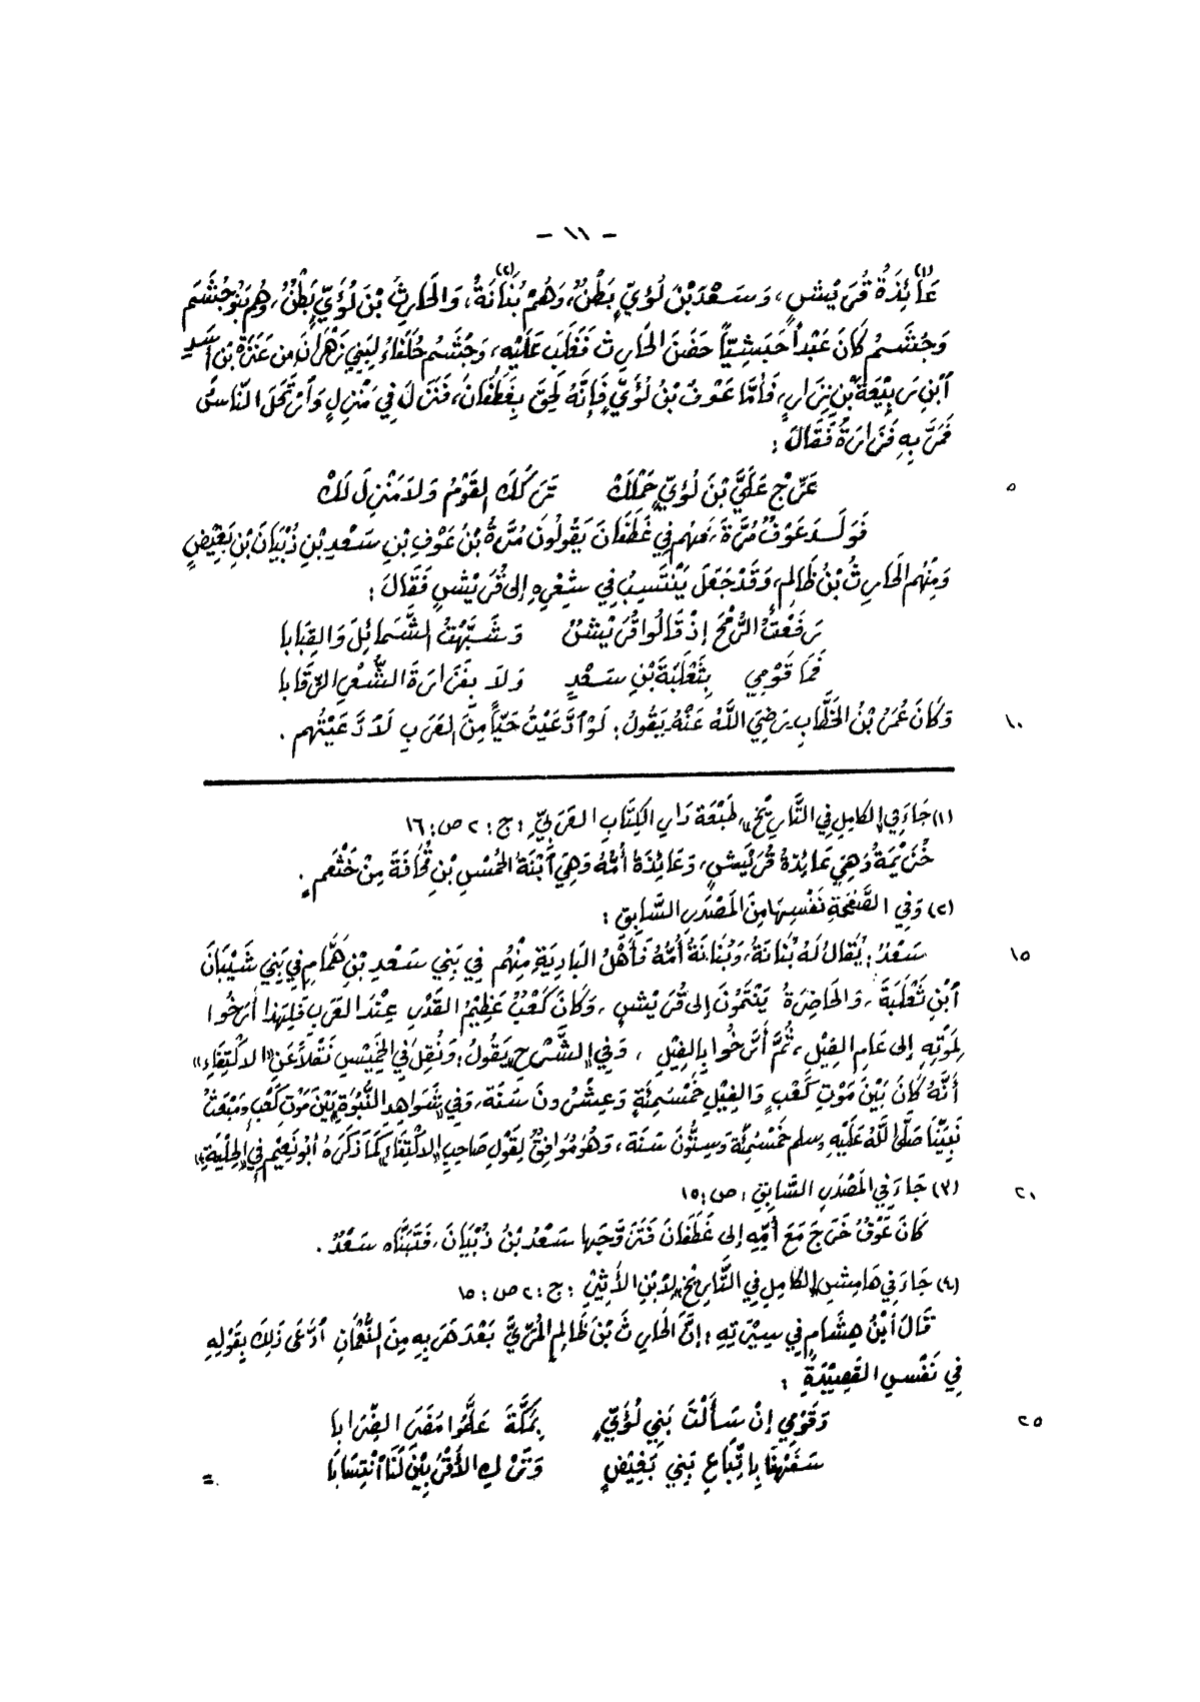 - ١١ -
عَائِذَةُ(١) قُرَيْشٍ، وَسَعْدَ بْنَ لُؤَيٍّ بَطْنٌ، وَهُمْ بُنَانَةُ(٢)، وَالحَارِثَ بْنَ لُؤَيٍّ بَطْنٌ، وَهُم بَنُو جُشَمَ
وَجُشَمُ كَانَ عَبْداً حَبَشِيّاً حَضَنَ الحَارِثَ فَغَلَبَ عَلَيْهِ، وَجُشَمُ حُلَفَاءُ لِبَنِي هَزَّانَ مِن عَنَزَةَ بْنِ أَسَدِ
ٱبْنِ رَبِيْعَةَ بْنِ نِزَارٍ، فَأَمَّا عَوْفُ بْنُ لُؤَيٍّ فَإِنَّهُ لَحِقَ بِغَطَفَانَ، فَنَزَلَ فِي مَنْزِلٍ وَٱرْتَحَلَ النَّاسُ
فَمَرَّ بِهِ فَزَارَةُ فَقَالَ :
عَرِّجْ عَلَيَّ بْنَ لُؤَيٍّ جَمَلَكْ تَرَكَكَ القَوْمُ وَلاَ مَنْزِلَ لَكْ
٥
فَوَلَدَ عَوْفٌ مُرَّةَ، فَهُم فِي غَطَفَانَ يَقُولُونَ مُرَّةُ بْنُ عَوْفِ بْنِ سَعْدِ بْنِ ذُبْيَانَ بْنِ بَغِيْضٍ
وَمِنْهُم الحَارِثُ بْنُ ظَالِمٍ، وَقَدْ جَعَلَ يَنْتَسِبُ فِي شِعْرِهِ إِلى قُرَيْشٍ فَقَالَ :
رَفَعْتُ الرُّمْحَ إِذْ قَالُوا قُرَيْشٌ وَشَبَّهْتُ الشَّمَائِلَ وَالقِبَابَا
فَمَا قَوْمِي بِثَعْلَبَةَ بْنِ سَعْدٍ وَلاَ بِفَزَارَةَ الشُّعْرِ الرِّقَابَا
وَكَانَ عُمَرُ بْنُ الخَطَّابِ رَضِيَ اللَّهُ عَنْهُ يَقُولُ : لَوْ ٱدَّعَيْتُ حَيّاً مِنَ العَرَبِ لَادَّعَيْتُهُم .
١٠
(١) جَاءَ فِي الكَامِلِ فِي التَّارِيْخِ، طَبْعَة دَارِ الكِتَابِ العَرَبِيِّ : ج : ٢ ص : ١٦
خُزَيْمَةُ وَهِيَ عَائِذَةُ قُرَيْشٍ، وَعَائِذَةُ أُمُّهُ وَهِيَ ٱبْنَةُ الخِمْسِ بْنِ قُحَافَةَ مِنْ خَثْعَمٍ .
(٢) وَفِي الصَّفْحَةِ نَفْسِهَا مِنَ المَصْدَرِ السَّابِقِ :
سَعْدٌ : يُقَالُ لَهُ بُنَانَةُ، وَبُنَانَةُ أُمُّهُ فَأَهْلُ البَادِيَةِ مِنْهُم فِي بَنِي سَعْدِ بْنِ هَمَّامٍ فِي بَنِي شَيْبَانَ
١٥
ٱبْنِ ثَعْلَبَةَ ، وَالحَاضِرَةُ يَنْتَمُونَ إِلى قُرَيْشٍ ، وَكَانَ كَعْبٌ عَظِيْمُ القَدْرِ عِنْدَ العَرَبِ فَلِهَذَا أَرَّخُوا
لِمَوْتِهِ إِلى عَامِ الفِيْلِ، ثُمَّ أَرَّخُوا بِالفِيْلِ ، وَفِي «الشَّرْحِ» يَقُولُ : وَنُقِلَ فِي الخَمِيْسِ نَقْلاً عَنِ «الاكْتِفَاءِ»
أَنَّهُ كَانَ بَيْنَ مَوْتِ كَعْبٍ وَالفِيْلِ خَمْسُمِئَةٍ وَعِشْرُونَ سَنَة، وَفِي شَوَاهِدِ النُّبُوَّةِ بَيْنَ مَوْتِ كَعْبٍ وَمَبْعَثُ
نَبِيِّنَا صَلَّى اللَّهُ عَلَيْهِ وسلم خَمْسُمِئَة وَسِتُّونَ سَنَة، وَهُوَ مُوَافِقٌ لِقَوْلِ صَاحِبِ «الاكْتِفَاءِ» كَمَا ذَكَرَهُ أَبُو نَعِيْمٍ فِي «الحِلْيَةِ»
(٣) جَاءَ فِي المَصْدَرِ السَّابِقِ : ص : ١٥
٢٠
كَانَ عَوْفٌ خَرَجَ مَعَ أُمِّهِ إِلى غَطَفَانَ فَتَزَوَّجَهَا سَعْدُ بْنُ ذُبْيَانَ، فَتَبَنَّاه سَعْدٌ .
(٤) جَاءَ فِي هَامِشِ «الكَامِلِ فِي التَّارِيْخِ» لِابْنِ الأَثِيْرِ : ج : ٢ ص : ١٥
قَالَ ٱبْنُ هِشَامٍ فِي سِيْرَتِهِ : إِنَّ الحَارِثَ بْنَ ظَالِمٍ المُرِّيَّ بَعْدَ هَرَبِهِ مِنَ النُّعْمَانِ ٱدَّعَى ذَلِكَ بِقَوْلِهِ
فِي نَفْسِ القَصِيْدَةِ :
وَقَوْمِي إِنْ سَأَلْتَ بَنِي لُؤَيٍّ بِمَكَّةَ عَلَّمُوا مُضَرَ الضِّرَابَا
٢٥
سَفَهْنَا بِاتِّبَاعِ بَنِي بَغِيْضٍ وَتَرْكِ الأَقْرَبِيْنَ لَنَا ٱنْتِسَابَا
=